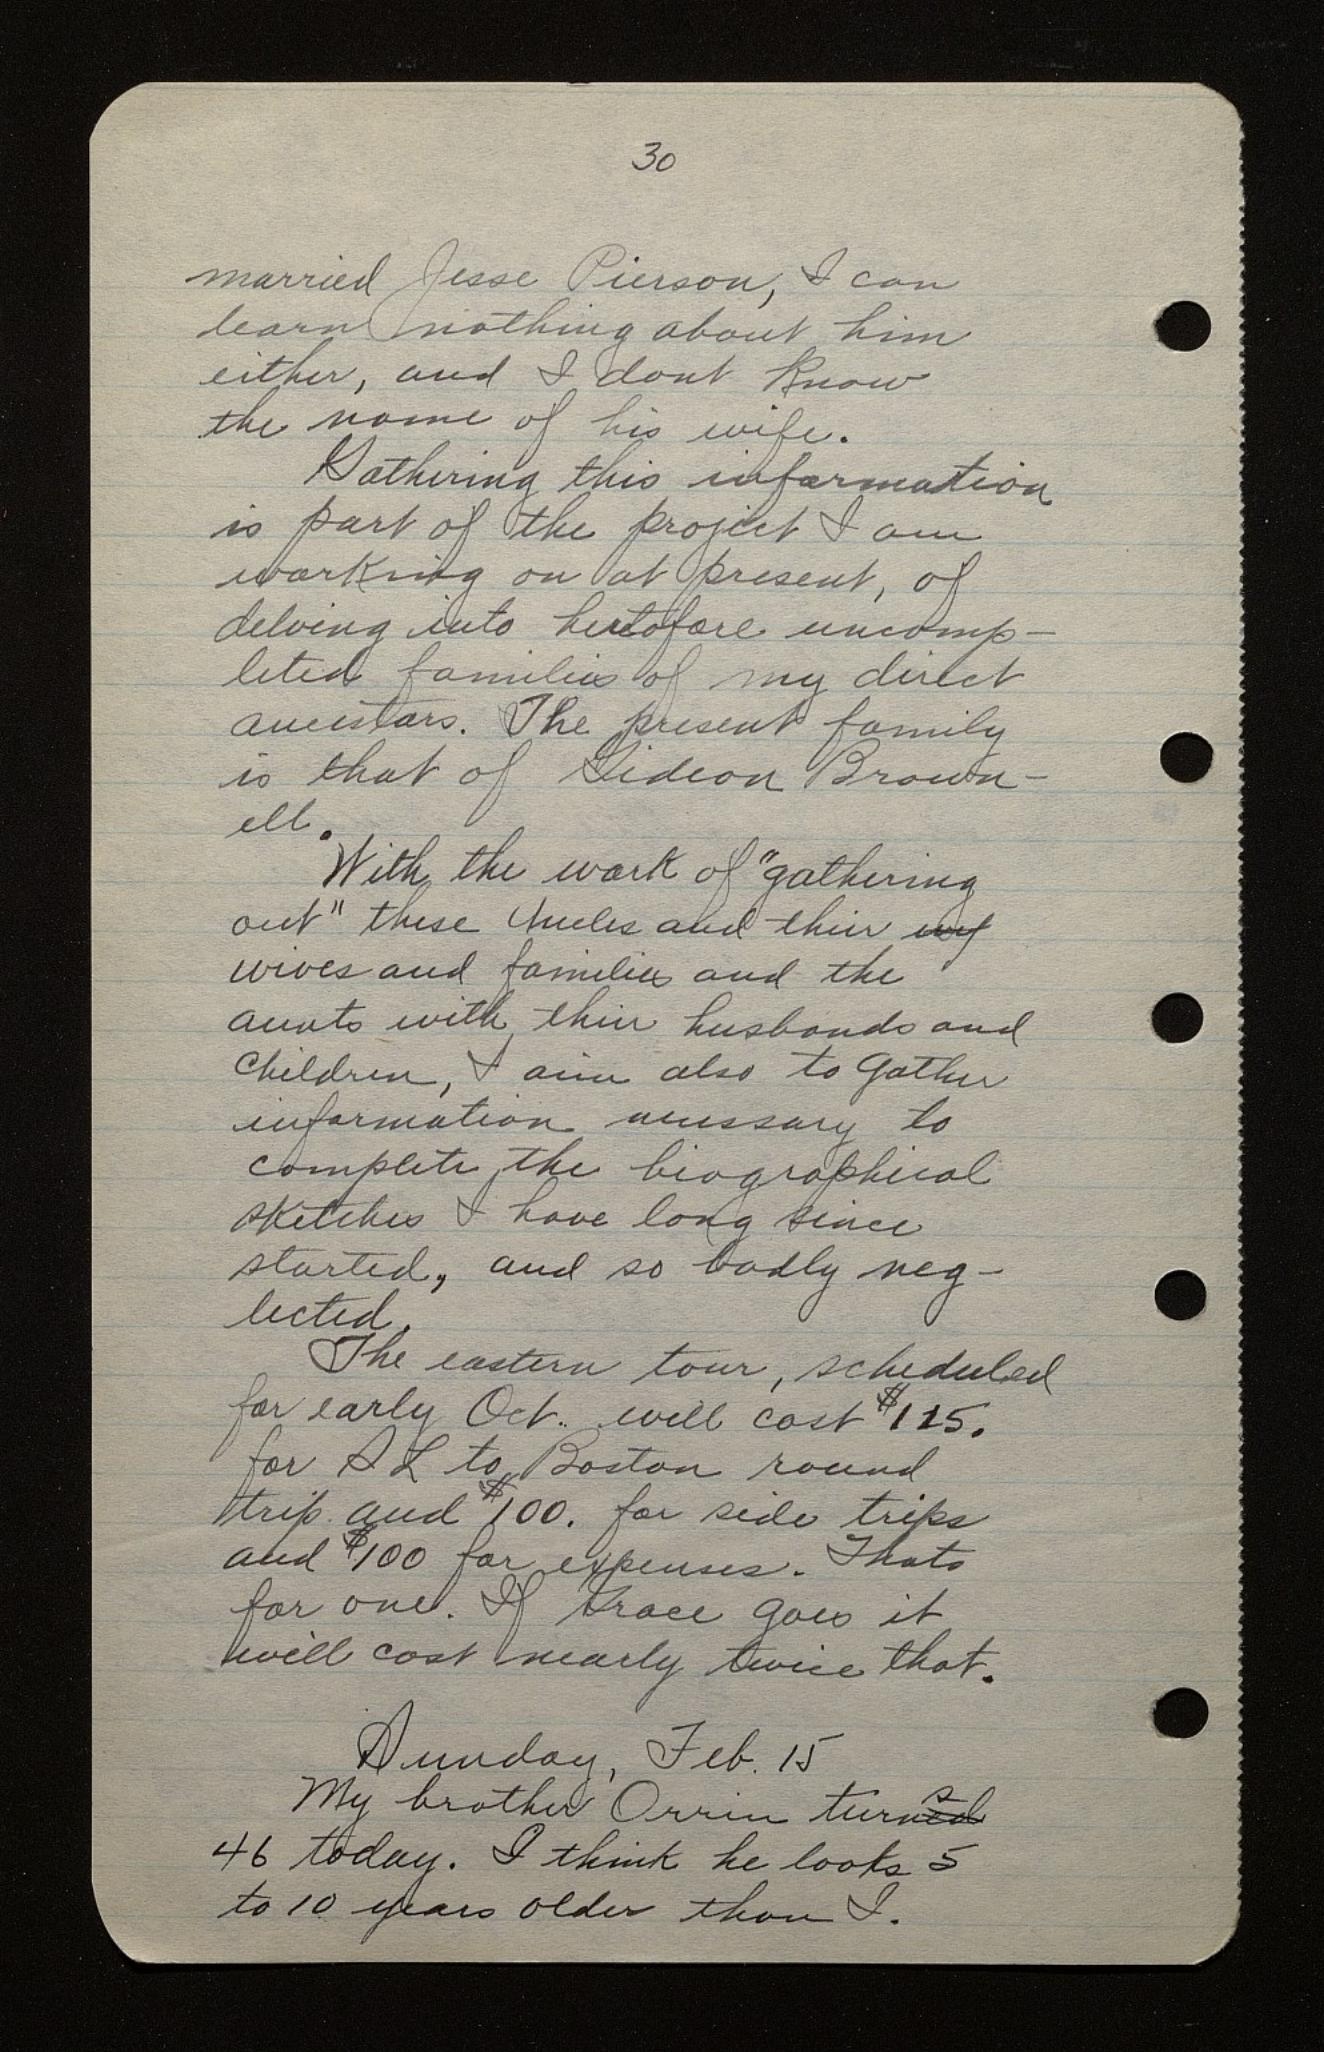 30
married Jesse Pierson, I can
learn nothing about him
either, and I dont know
the name of his wife.
Gathering this information
is part of the project I am
working on at present, of
delving into hertofore uncomp-
leted families of my direct
ancestors. The present family
is that of Gideon Brown-
ell.
With the work of "gathering
out" these Uncles and their wif
wives and families and the
aunts with their husbands and
children, I aim also to gather
information necessary to
complete the biographical
sketches I have long since
started, and so badly neg-
lected.
The eastern tour, scheduled
for early Oct. will cost $125.
for S L to Boston round
trip and $100. for side trips
and $100 for expenses. Thats
for one. If Grace goes it
will cost nearly twice that.
Sunday, Feb. 15
My brother Orrin turns
46 today. I think he looks 5
to 10 years older than I.